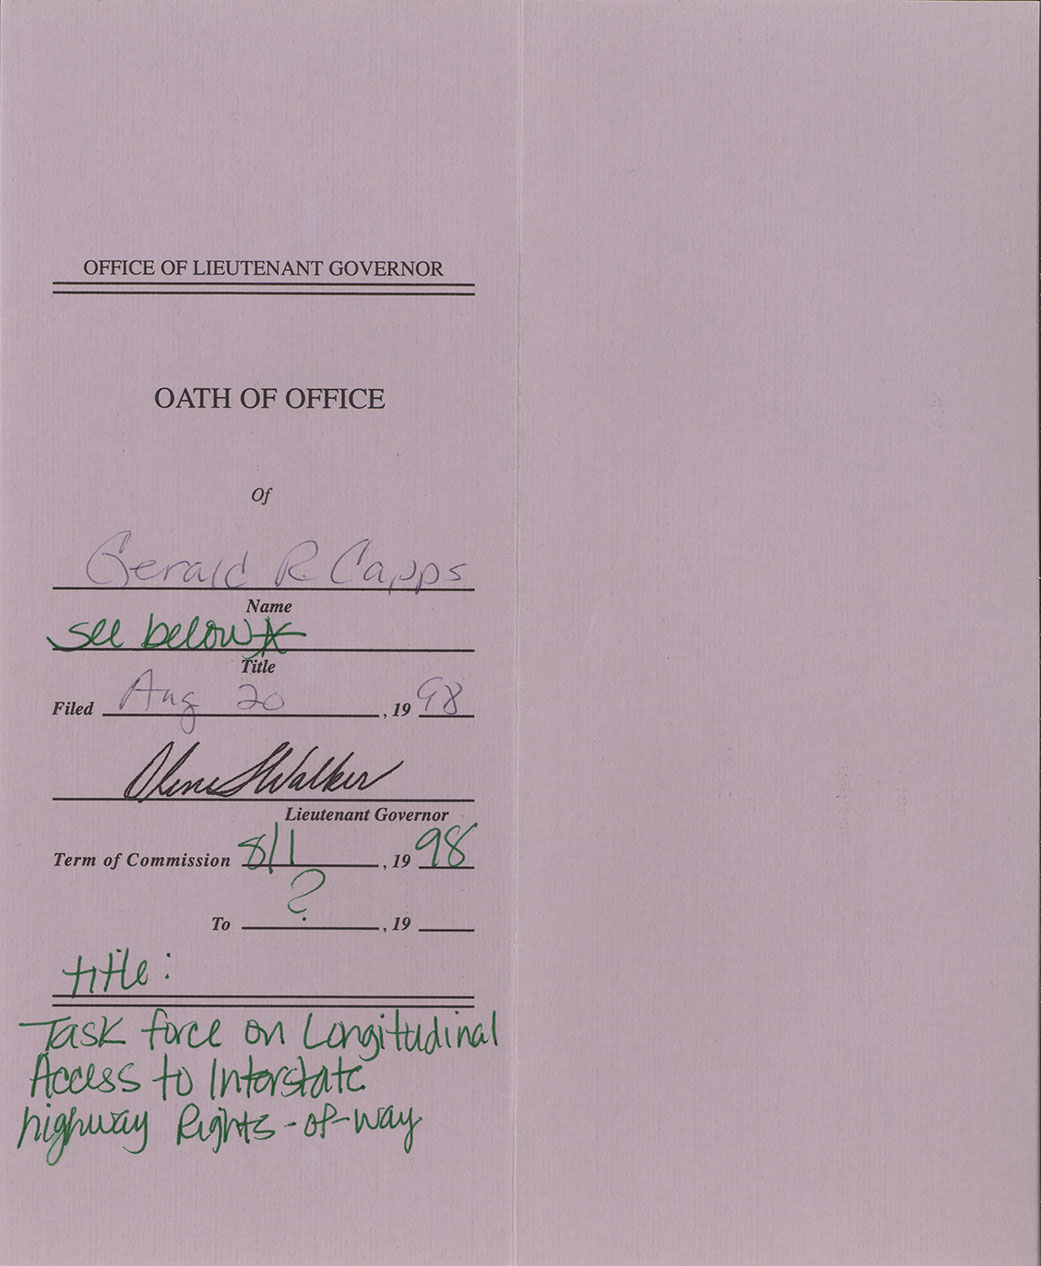 OFFICE OF LIEUTENANT GOVERNOR
OATH OF OFFICE
Of
Gerald R Capps
Name
see below*
Title
Filed Aug 20, 19 98
Olene S Walker
Lieutenant Governor
Term of Commission 8/1, 19 98
To ?, 19
title:
Task force on Longitudinal
Access to Interstate
highway Rights-of-way